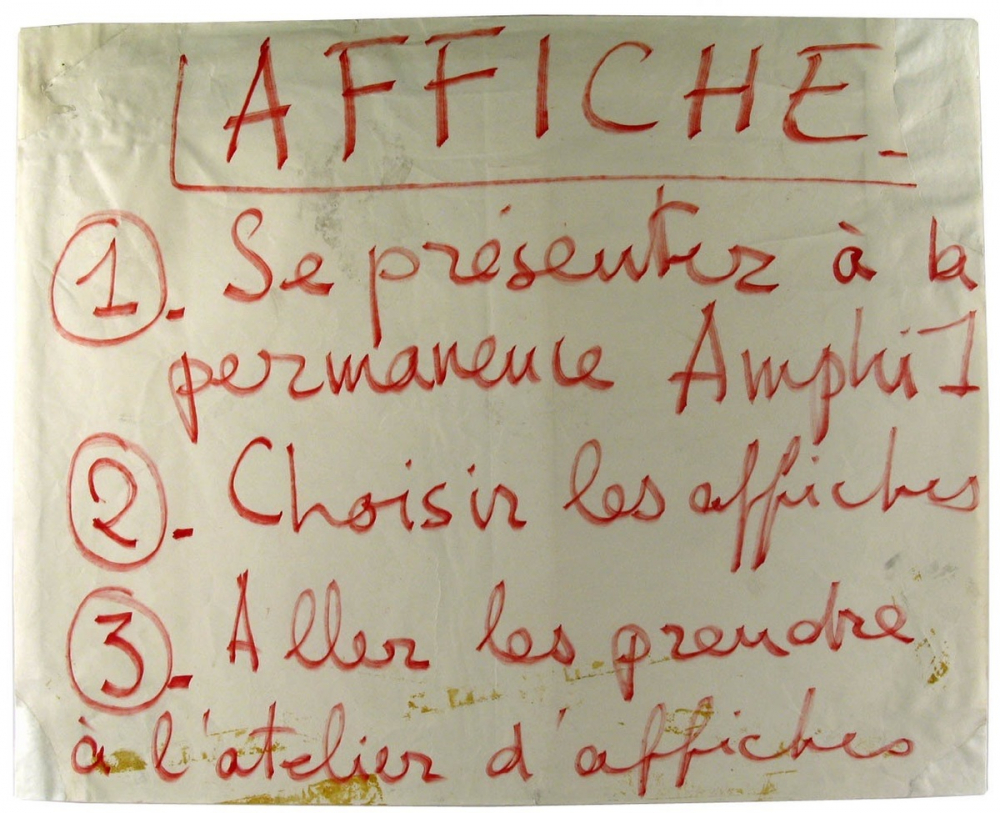 AFFICHE_
1. Se présenter à la
permanence Amphi 1
2- Choisir les affiches
3- Aller les prendre
à l'atelier d'affiches